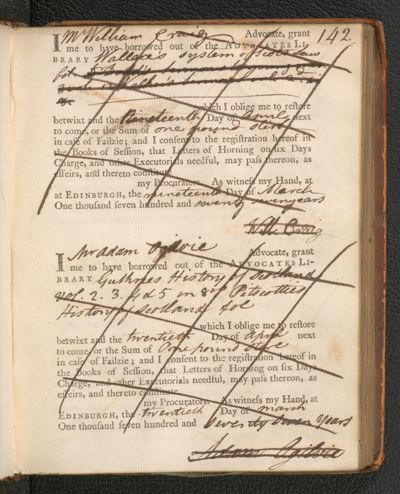 142.
I Mr William Craig Advocate, grant
me to have borrowed out of the ADVOCATES LI-
BRARY Wallace's System of Scots law
fol.
which I oblige me to restore
betwixt and the Nineteenth Day of April next
to come, or the Sum of one pound sterl
in case of Failzie; and I consent to the registration hereof in
the Books of Session, that Letters of Horning on six Days
Charge, and other Executorials needful, may pass thereon, as
effeirs, and thereto constitute
my Procurators. As witness my Hand, at
at EDINBURGH, the nineteenth Day of March
One thousand seven hundred and seventy seven years
Will. Craig
I Mr Adam Ogilvie Advocate, grant
me to have borrowed out of the ADVOCATES LI-
BRARY Guthries History of Scotland
vol. 2. 3. 4 & 5 in 8vo Pitscotties
History of Scotland fol
which I oblige me to restore
betwixt and the twentieth Day of April next
to come, or the Sum of One pound
in case of Failzie; and I consent to the registration hereof in
the Books of Session, that Letters of Horning on six Days
Charge, and other Executorials needful, may pass thereon, as
effeirs, and thereto constitute
my Procurators. As witness my Hand, at
EDINBURGH, the twentieth Day of March
One thousand seven hundred and Seventy Seven Years
Adam Ogilvie